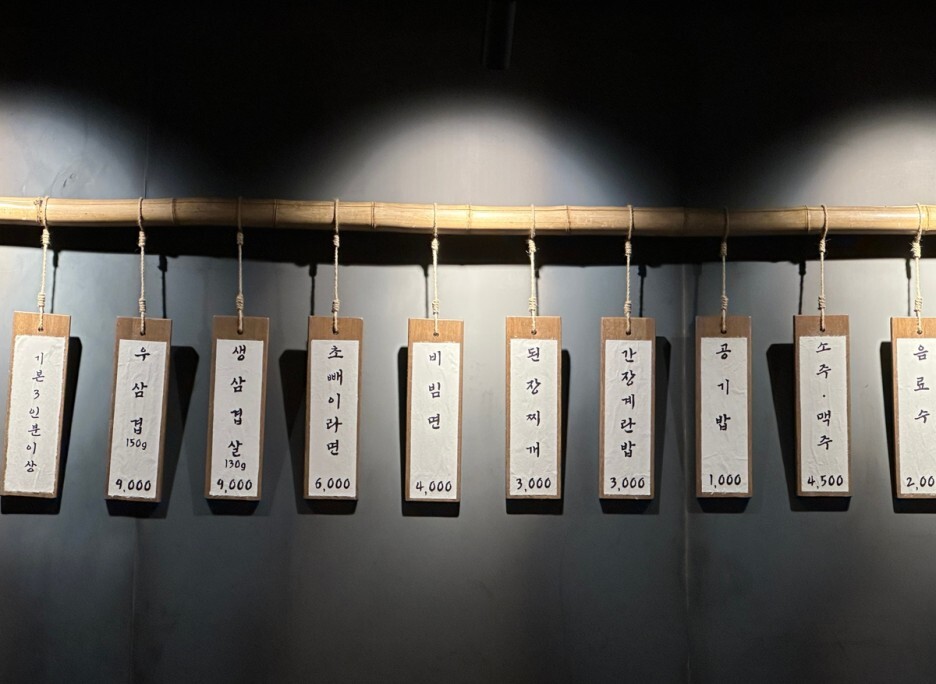 기본3인분이상
우삼겹
150g
9,000
생삼겹살
130g
9,000
초빼이라면
6,000
비빔면
4,000
된장찌개
3,000
간장계란밥
3,000
공기밥
1,000
소주·맥주
4,500
음료수
2,00